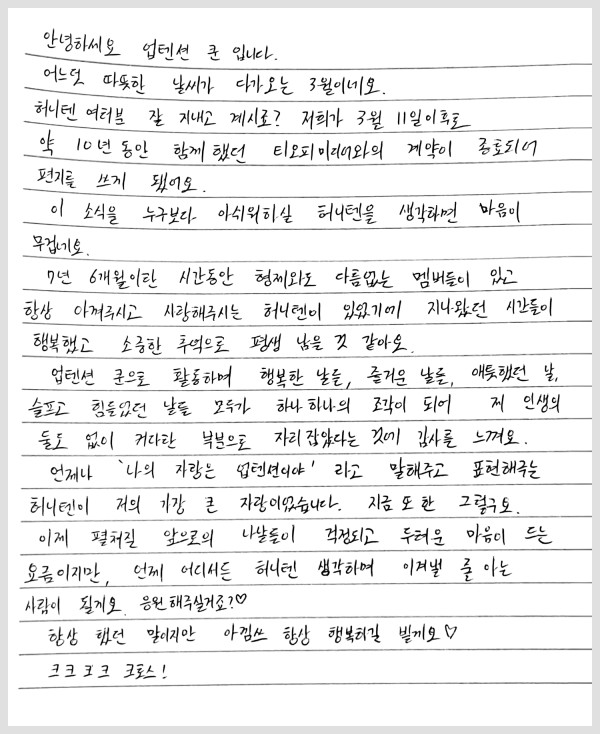 안녕하세요 업텐션 쿤 입니다.
어느덧 따뜻한 날씨가 다가오는 3월이네요.
허니텐 여러분 잘 지내고 계시죠? 저희가 3월 11일 이후로
약 10년 동안 함께 했던 티오피미디어와의 계약이 종료되어
편지를 쓰게 됐어요.
이 소식을 누구보다 아쉬워하실 허니텐을 생각하면 마음이
무겁네요.
7년 6개월이란 시간동안 형제와도 다름없는 멤버들이 있고
항상 아껴주시고 사랑해주시는 허니텐이 있었기에 지나왔던 시간들이
행복했고 소중한 추억으로 평생 남을 것 같아요.
업텐션 쿤으로 활동하며 행복한 날들, 즐거운 날들, 애틋했던 날,
슬프고 힘들었던 날들 모두가 하나 하나의 조각이 되어 제 인생의
둘도 없이 커다란 부분으로 자리 잡았다는 것에 감사를 느껴요.
언제나 '나의 자랑은 업텐션이야' 라고 말해주고 표현해주는
허니텐이 저의 가장 큰 자랑이었습니다. 지금 또 한 그렇구요.
이제 펼쳐질 앞으로의 나날들이 걱정되고 두려운 마음이 드는
요즘이지만, 언제 어디서든 허니텐 생각하며 이겨낼 줄 아는
사람이 될게요. 응원해주실거죠?♡
항상 했던 말이지만 아낌쓰 항상 행복하길 빌게요♡
크크크크 크로스!